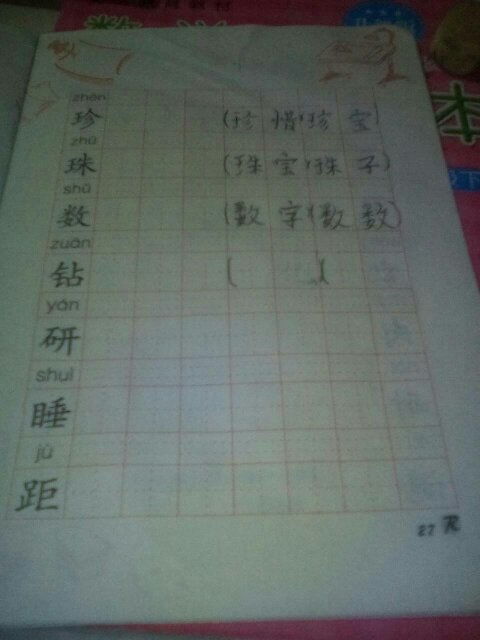 zhēn
珍 (珍惜)(珍宝)
zhū
珠 (珠宝)(珠子)
shǔ
数 (数字)(数数)
zuān
钻 ( )(
yán
研
shuì
睡
jù
距
27
本